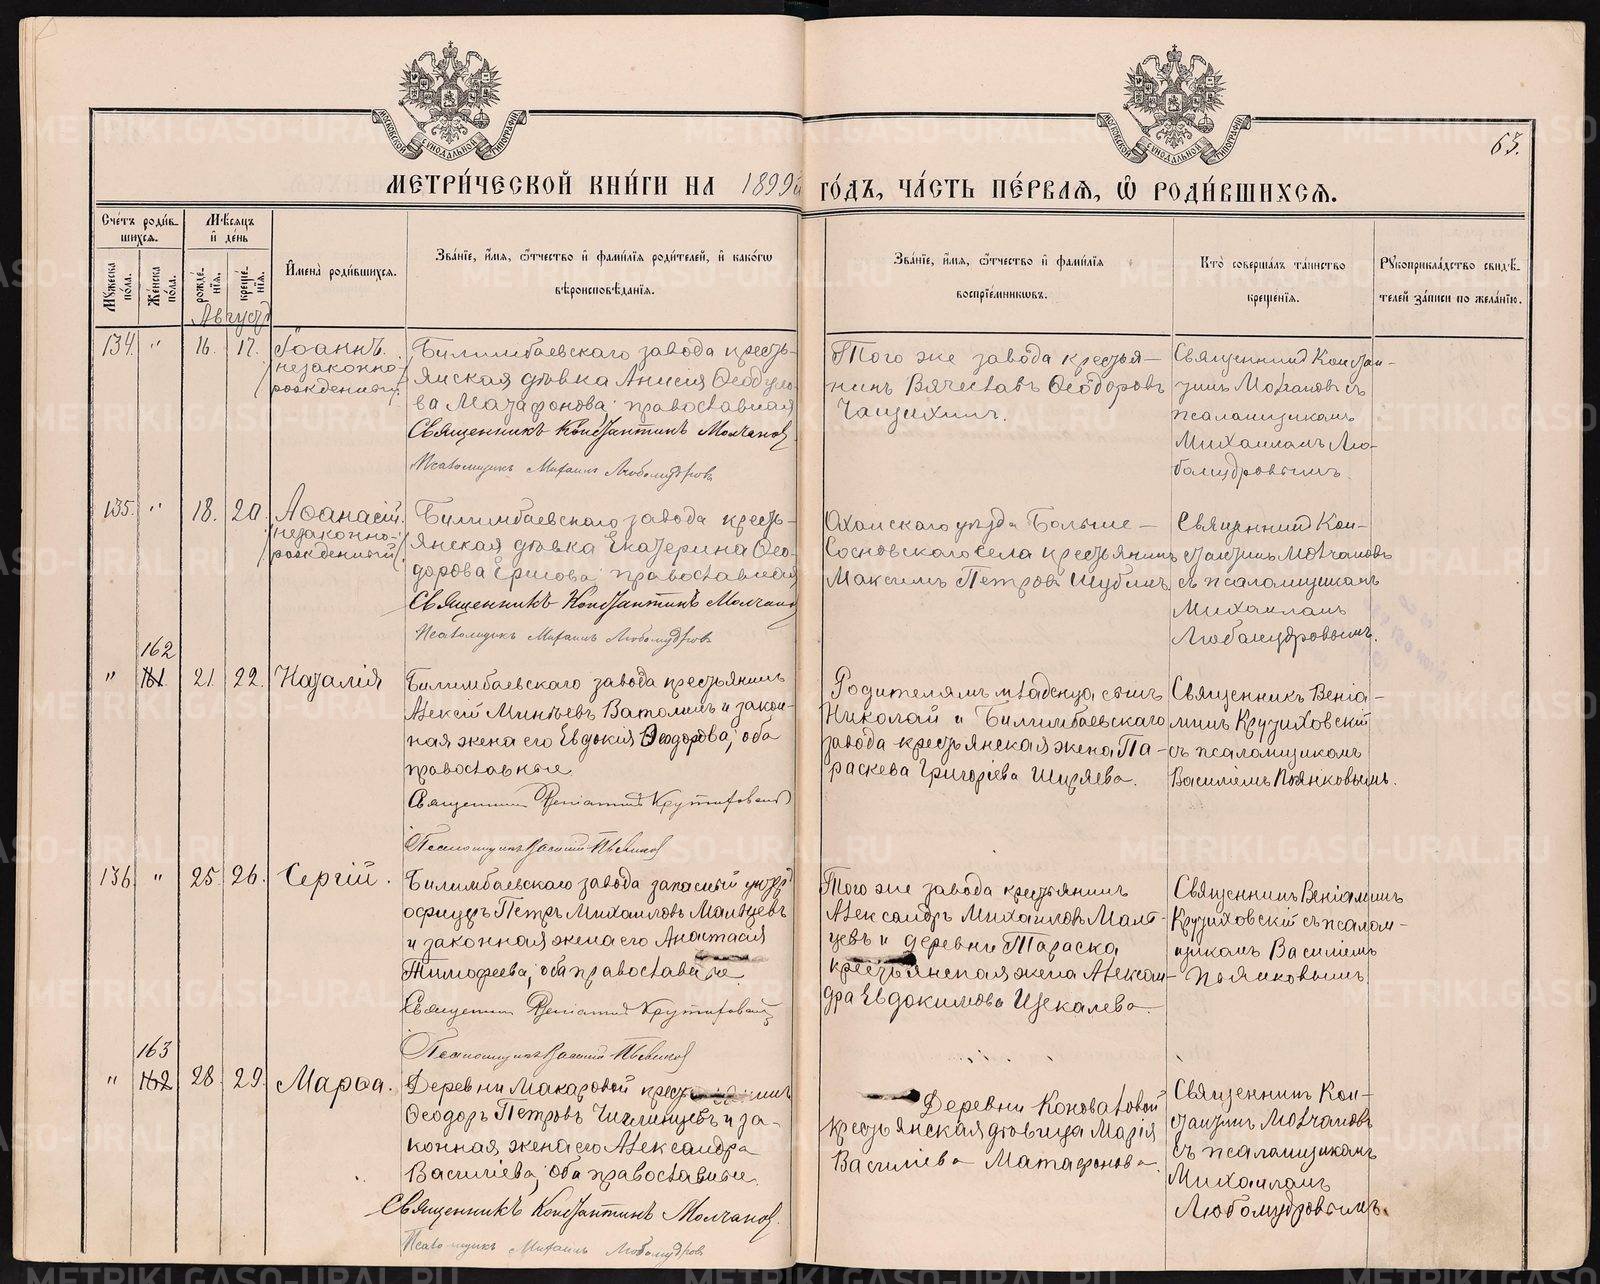 МОСКОВСКОЙ СУНОДАЛЬНОЙ ТИПОГРАФІИ
МОСКОВСКОЙ СУНОДАЛЬНОЙ ТИПОГРАФІИ
63.
МЕТРИ́ЧЕСКОЙ КНИ́ГИ НА 1899й ГО́ДЪ, ЧА́СТЬ ПЕ́РВАѦ, Ѡ РОДИ́ВШИХСѦ.
Сче́тъ роди́в-
шихсѧ.
Мꙋжеска по́ла.
Же́нска по́ла.
Мѣ́сѧцъ
и҆ де́нь
рожде́нїѧ.
креще́нїѧ.
И҆мена̀ роди́вшихсѧ.
Зва́нїе, и҆́мѧ, ѻ҆́тчество и҆ фами́лїѧ роди́телей, и҆ како́гѡ
вѣроисповѣ́данїѧ.
Зва́нїе, и҆́мѧ, ѻ҆́тчество и҆ фами́лїѧ
воспрїе́мникѡвъ.
Кто̀ соверша́лъ та́инство
креще́нїѧ.
Рꙋкоприкла́дство свидѣ́-
телей за́писи по жела́нїю.
Августъ
134. " 16. 17. Іоаннъ.
(незаконно-
рожденный).
Билимбаевскаго завода кресть-
янская дѣвка Анисія Ѳеодуло-
ва Матафонова; православная
Священникъ Константинъ Молчановъ
Псаломщикъ Михаилъ Любомудровъ
Того же завода крестья-
нинъ Вячеславъ Ѳеодоровъ
Чащихинъ.
Священникъ Констан-
тинъ Молчановъ съ
псаломщикомъ
Михаиломъ Лю-
бомудровымъ.
135. " 18. 20. Аѳанасій.
(незаконно-
рожденный).
Билимбаевскаго завода кресть-
янская дѣвка Екатерина Ѳео-
дорова Ершова; православная
Священникъ Константинъ Молчановъ
Псаломщикъ Михаилъ Любомудровъ
Оханскаго уѣзда Больше-
Сосновскаго села крестьянинъ
Максимъ Петровъ Шубинъ
Священникъ Кон-
стантинъ Молчановъ
съ псаломщикомъ
Михаиломъ
Любомудровымъ.
162
" 161 21. 22. Наталія
Билимбаевскаго завода крестьянинъ
Алексій Минѣевъ Ватолинъ и закон-
ная жена его Евдокія Ѳеодорова; оба
православные
Священникъ Веніаминъ Крутиховскій
Псаломщикъ Василій Пьянковъ
Родителямъ младенца сынъ
Николай и Билимбаевскаго
завода крестьянская жена Па-
раскева Григоріева Ширяева.
Священникъ Веніа-
минъ Крутиховскій
съ псаломщикомъ
Василіемъ Пьянковымъ.
136 " 25. 26. Сергій.
Билимбаевскаго завода запасный унтеръ
офицеръ Петръ Михаиловъ Мальцевъ
и законная жена его Анастасія
Тимофеева; оба православные
Священникъ Веніаминъ Крутиховскій
Псаломщикъ Василій Пьянковъ
Того же завода крестьянинъ
Александръ Михаиловъ Маль-
цевъ и деревни Тараска
крестьянская жена Алексан-
дра Евдокимова Щекалева.
Священникъ Веніаминъ
Крутиховскій съ псалом-
щикомъ Василіемъ
Пьянковымъ
163
" 162 28. 29. Марѳа.
Деревни Макаровой крестьянинъ
Ѳеодоръ Петровъ и за-
конная жена его Александра
Василіева; оба православные.
Священникъ Константинъ Молчановъ.
Псаломщикъ Михаилъ Любомудровъ
Деревни Коноваловой
крестьянская дѣвица Марія
Василіева Матафонова.
Священникъ Кон-
стантинъ Молчановъ
съ псаломщикомъ
Михаиломъ
Любомудровымъ.
METRIKI.GASO-URAL.RU